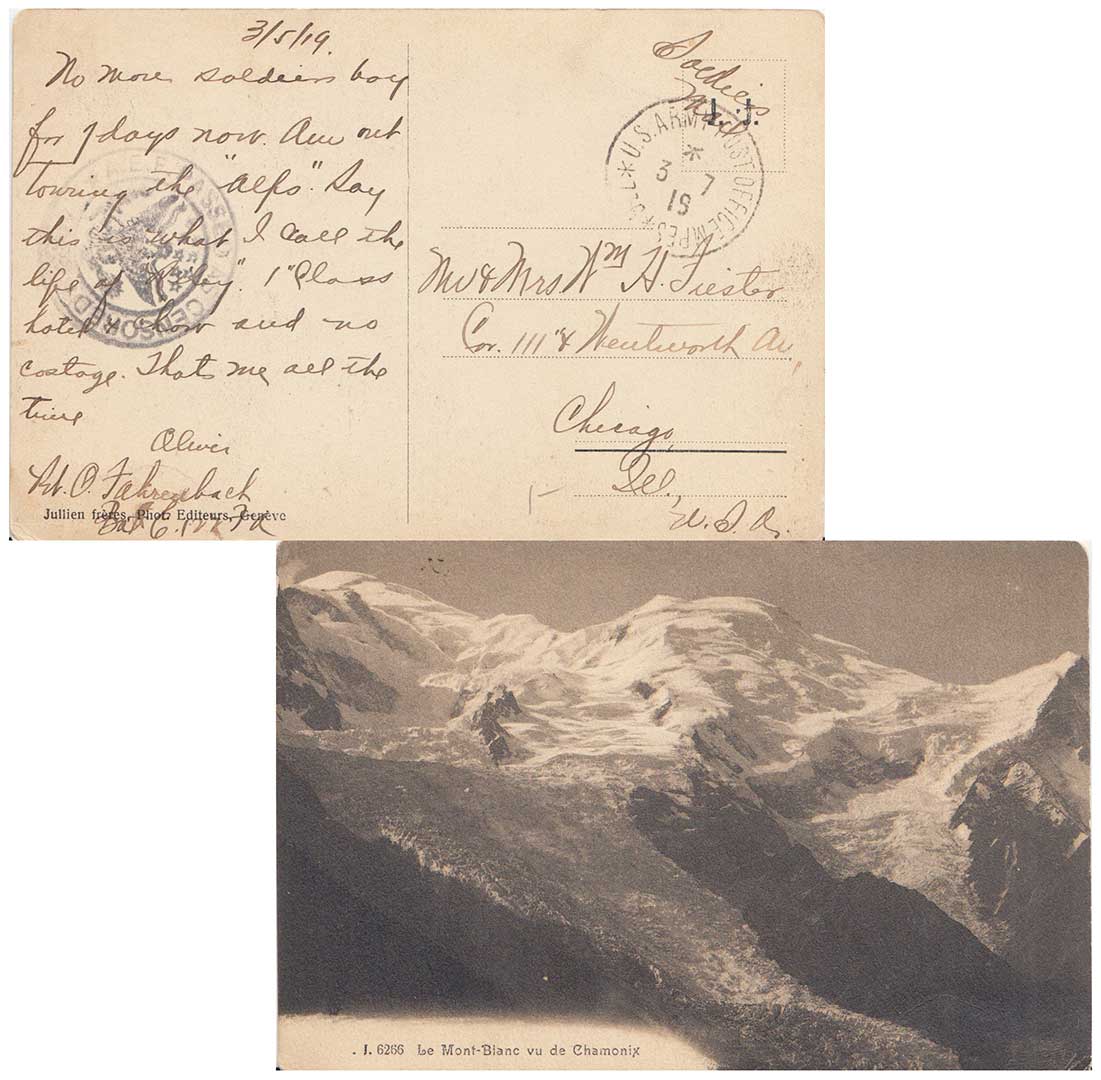 3/5/19.
No more soldiers boy
for 7 days now. Am out
touring the "Alps". Say
this is what I call the
life of "Riley". 1" Class
hotel & chow and no
costage. Thats me all the
time
Oliver
O. Fahrenbach
Bat E. 122 FA
Jullien frères, Phot. Editeurs, Genève
Soldiers
Mail
J. J.
U.S. ARMY POST OFFICE M.P.E.S.
3 7
19
A.E.F. PASSED AS CENSORED
Mr & Mrs Wm H. Fiester
Cor. 111 & Wentworth Av,
Chicago,
Ill,
U. S. A.
J. 6266 Le Mont-Blanc vu de Chamonix